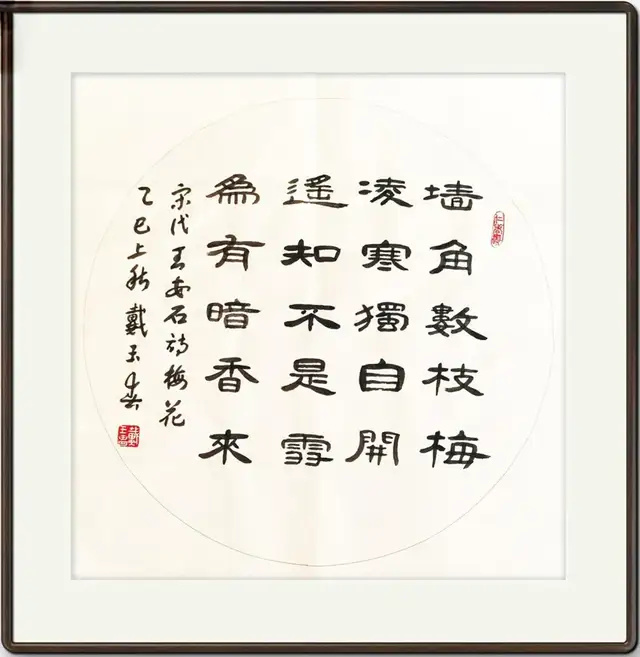 墙角數枝梅
凌寒獨自開
遙知不是雪
為有暗香來
宋代王安石詩梅花
乙巳上秋戴玉春